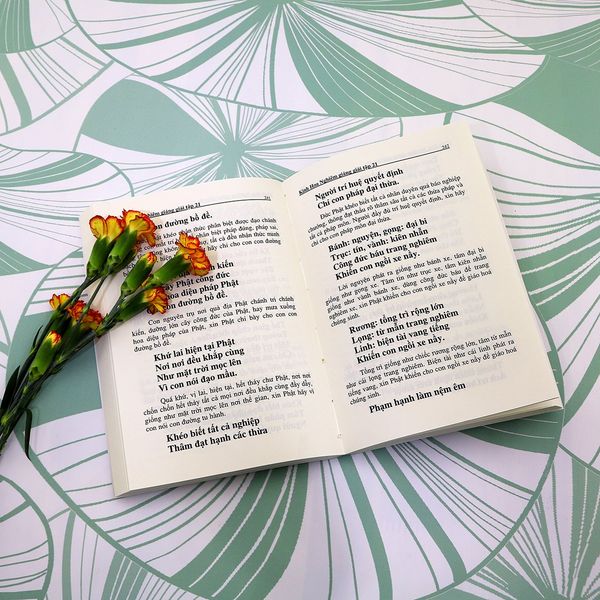 Kinh Hoa Nghiêm giảng giải tập 23
con đường bồ đề.
phân biệt được đạo chánh
phân biệt pháp đúng, pháp sai,
tất cả đều nhận thức minh
hãy chỉ cho con con đường
kiến
Phật công đức
hoa diệu pháp Phật
đường bồ đề.
Con nguyện trụ nơi quả địa Phật chánh tri chánh
kiến, đường lớn cây công đức của Phật, hay mưa xuống
hoa diệu pháp của Phật, xin Phật chỉ bày cho con con
đường bồ đề.
Khứ lai hiện tại Phật
Nơi nơi đều khắp cùng
Như mặt trời mọc lên
Vì con nói đạo mầu.
Quá khứ, vị lai, hiện tại, hết thảy chư Phật, nơi
chốn chốn hết thảy tất cả mọi nơi đều khắp cùng đầy dẫy,
giống như mặt trời mọc lên nơi thế gian, xin Phật hãy vì
con nói con đường tu hành.
Khéo biết tất cả nghiệp
Thâm đạt hạnh các thừa
Kinh Hoa Nghiêm giảng giải tập 23 241
Người trí huệ quyết định
Chỉ con pháp đại thừa.
Đức Phật khéo biết tất cả nhân duyên quả báo nghiệp
chướng, thông đạt thấu rõ thâm sâu tất cả các thừa pháp và
tất cả pháp môn. Người đầy đủ trí huệ quyết định, xin hãy
chỉ cho con pháp môn đại thừa.
Bánh: nguyện, gọng: đại bi
Trục: tín, vành: kiên nhẫn
Công đức báu trang nghiêm
Khiến con ngồi xe này.
Lời nguyện phát ra giống như bánh xe, tâm đại bi
giống như gọng xe. Tâm tín như trục xe, tâm kiên nhẫn
giống như vành bánh xe, dùng công đức báu để trang
nghiêm, xin Phật khiến cho con ngồi xe này để giáo hoá
chúng sinh.
Rương: tổng trì rộng lớn
Lọng: từ mẫn trang nghiêm
Linh: biện tài vang tiếng
Khiến con ngồi xe này.
Tổng trì giống như chiếc rương rộng lớn, tâm từ mẫn
như cái lọng trang nghiêm. Biện tài như cái linh phát ra
tiếng vang, xin Phật khiến cho con ngồi xe này để giáo hoá
chúng sinh.
Phạm hạnh làm nệm êm